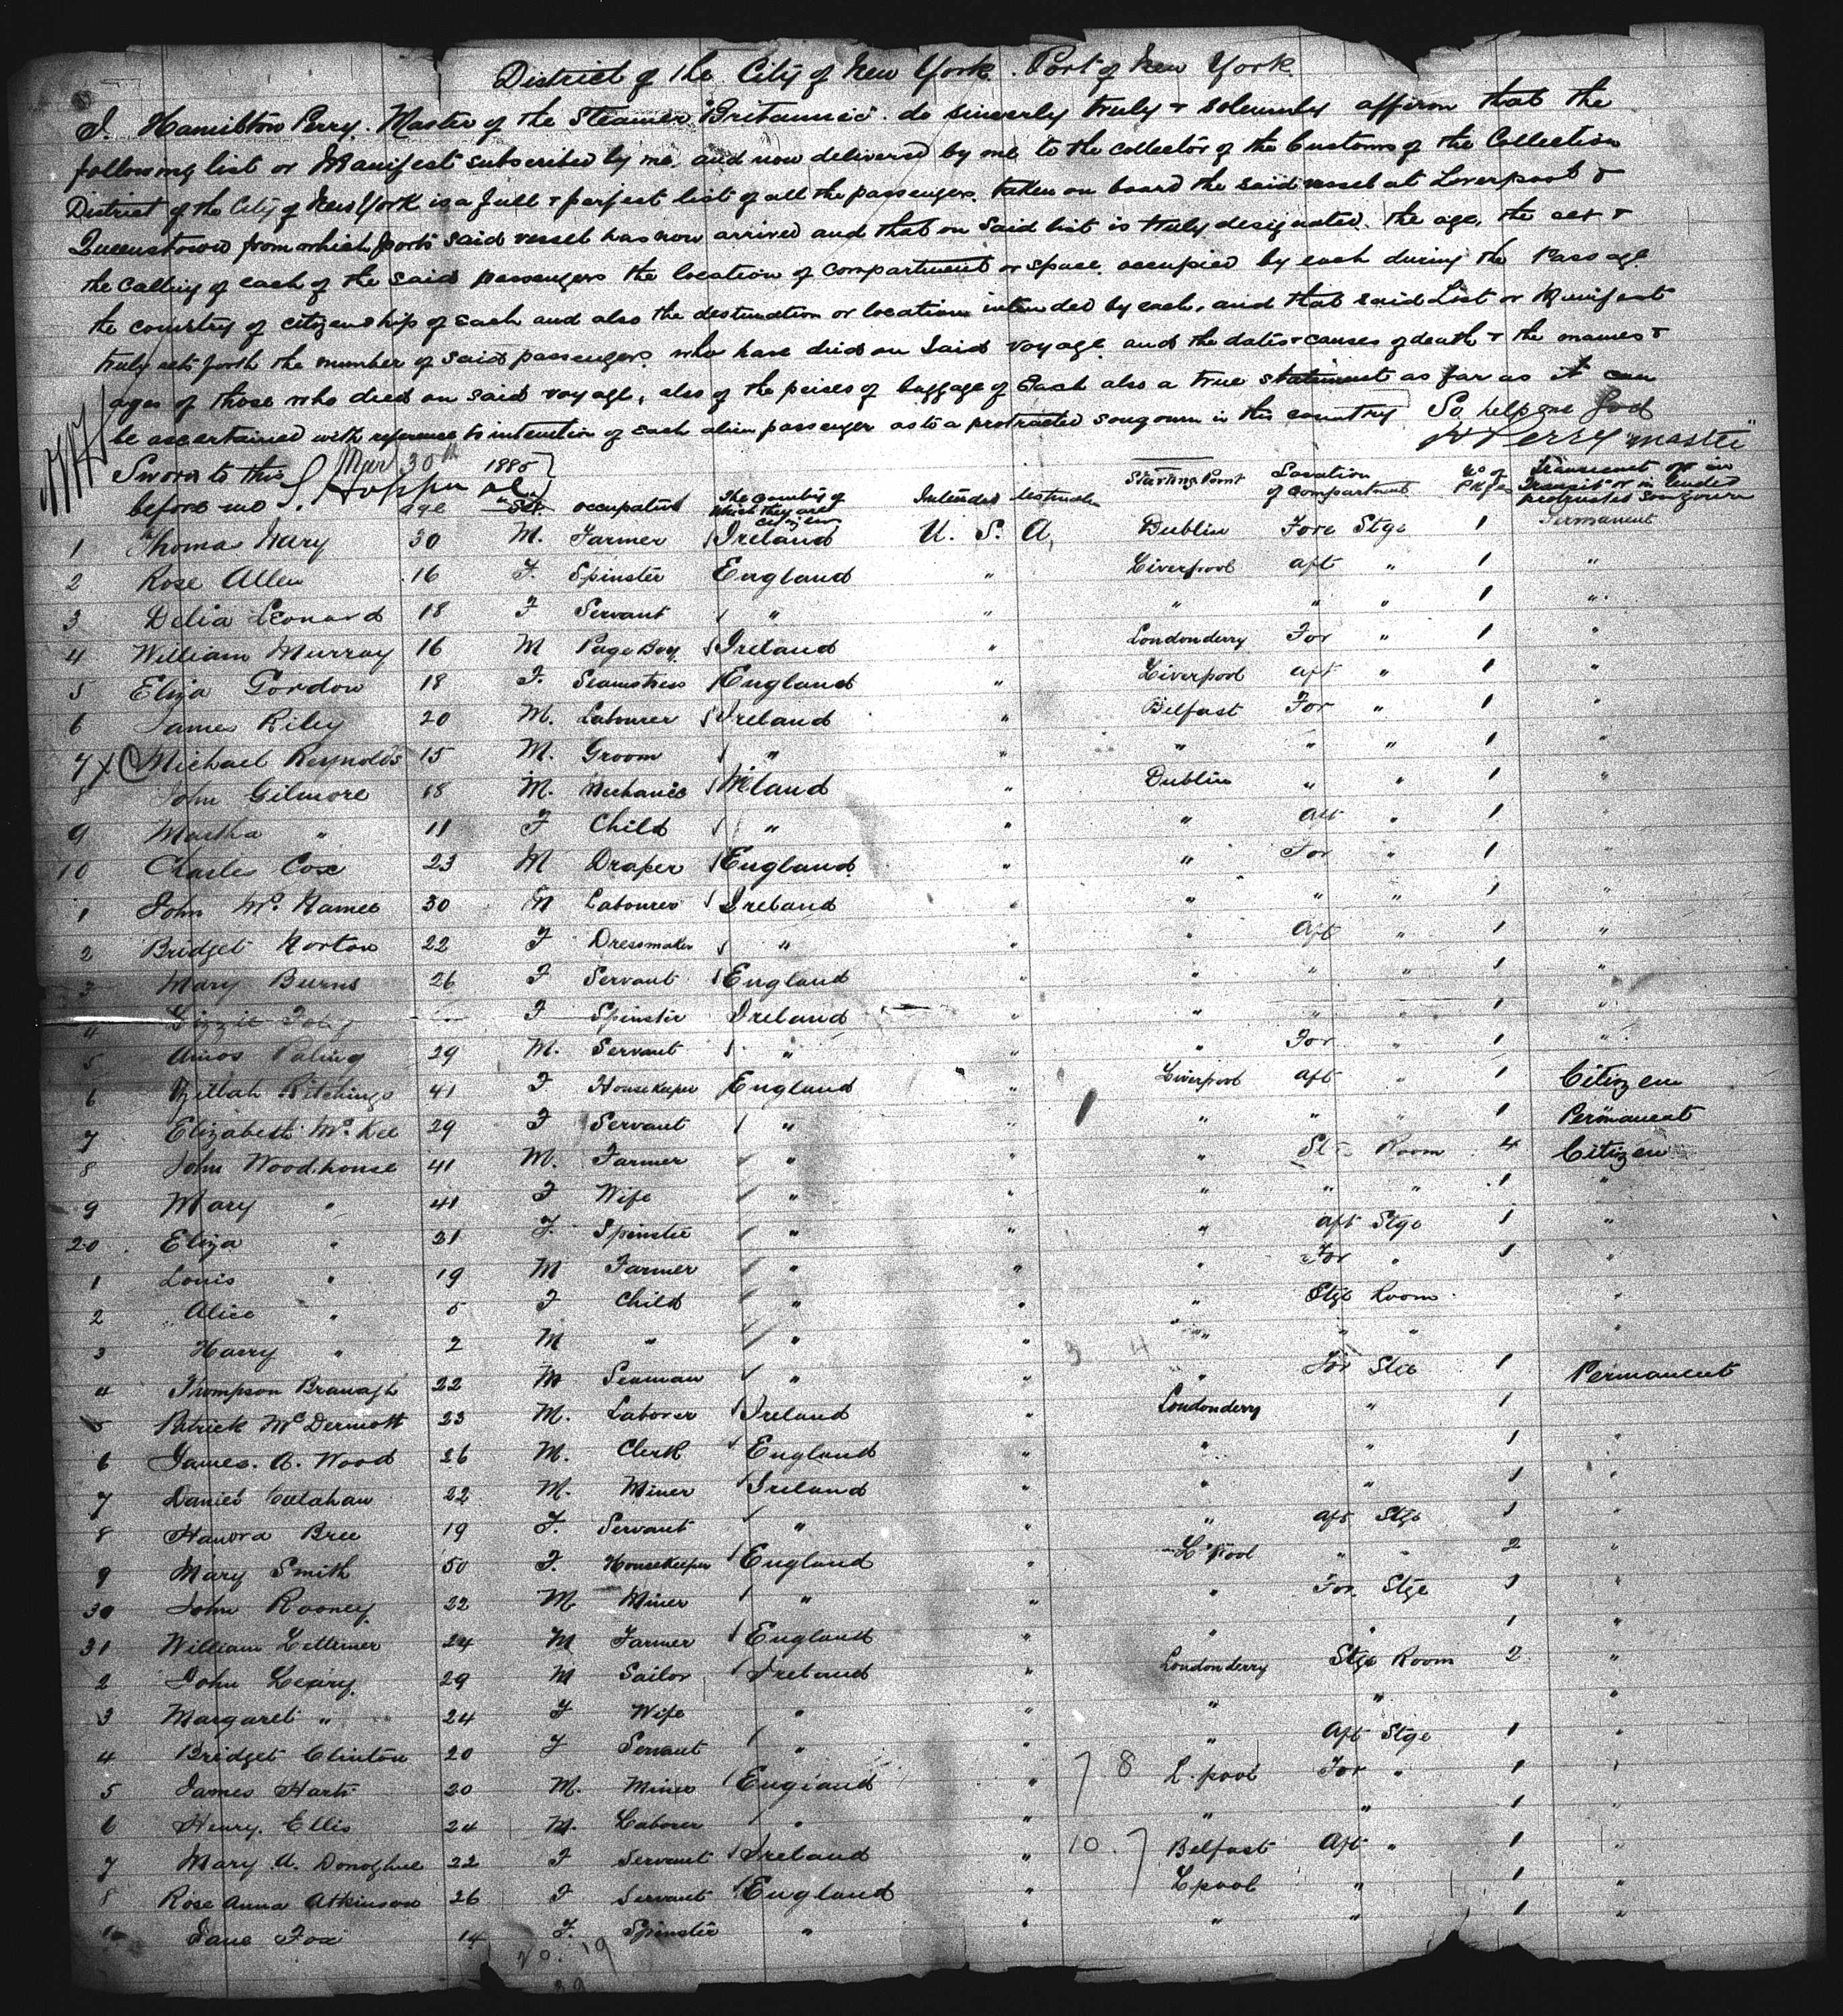 District of the City of New York. Port of New York.
I. Hamilton Perry. Master of the Steamer "Britannic" do sincerely truly & solemnly affirm that the
following list or Manifest subscribed by me and now delivered by me to the collector of the Customs of the Collection
District of the City of New York is a full & perfect list of all the passengers taken on board the said vessel at Liverpool &
Queenstown from which ports said vessel has now arrived and that on said list is truly designated the age, the sex &
the calling of each of the said passengers the location of compartment or space occupied by each during the Passage
the country of citizenship of each and also the destination or location intended by each, and that said List or Manifest
truly sets forth the number of said passengers who have died on said voyage and the dates & causes of death & the names &
ages of those who died on said voyage, also of the peises of luggage of Each also a true statement as far as it can
be ascertained with reference to intention of each alien passenger as to a protracted sougourn in this country So help me God
H Perry master
Sworn to this Mar 30th 1885
before me
age Sex occupation The country of which they are citizen Intended destination Starting Point Location of compartment No of Pkges Transient or in Transit or in tended protracted sougourn
1 Thomas Nary 30 M. Farmer Ireland U. S. A, Dublin Fore Stge 1 Permanent
2 Rose Allen 16 F. Spinster England " Liverpool aft " 1 "
3 Delia Leonard 18 F Servant " " " " " 1 "
4 William Murray 16 M Page Boy Ireland " Londonderry For " 1 "
5 Eliza Gordon 18 F. Seamstress England " Liverpool aft " 1 "
6 James Riley 20 M. Labourer Ireland " Belfast For " 1 "
7 X Michael Reynolds 15 M. Groom " " " " " 1 "
8 John Gilmore 18 M. Mechanic Ireland " Dublin " " 1 "
9 Martha " 11 F Child " " " Aft " 1 "
10 Charles Cox 23 M Draper England " " For " 1 "
1 John Mc Namee 30 M Labourer Ireland " " " " 1 "
2 Bridget Norton 22 F Dressmaker " " " Aft " 1 "
3 Mary Burns 26 F Servant England " " " " 1 "
4 Lizzie F Spinster Ireland " " " " 1 "
5 Amos Paling 29 M. Servant " " " For " 1 "
6 Zillah Ritchings 41 F Housekeeper England " Liverpool aft " 1 Citizen
7 Elizabeth Mc Kee 29 F Servant " " " " " 1 Permanent
8 John Woodhouse 41 M. Farmer " " " Room 4 Citizen
9 Mary " 41 F Wife " " " " " 1 "
20 Eliza " 21 F. Spinster " " " aft Stge 1 "
1 Louis " 19 M Farmer " " " For " 1 "
2 Alice " 5 F Child " " " Stge Room "
3 Harry " 2 M " " " " " " "
3 4
4 Thompson Branagh 22 M Seaman " " " For Stge 1 Permanent
5 Patrick Mc Dermott 23 M. Laborer Ireland " Londonderry " 1
6 James. A. Wood 26 M. Clerk England " " " 1 "
7 Daniel Callahan 22 M. Miner Ireland " " " 1 "
8 Hanora Bree 19 F. Servant " " " aft Stge 1 "
9 Mary Smith 50 F. Housekeeper England " L'Pool " " 2 "
30 John Rooney 22 M Miner " " " For. Stge 1 "
31 William 24 M Farmer England " " " 1 "
2 John Leary 29 M Sailor Ireland " Londonderry Stge Room 2 "
3 Margaret " 24 F Wife " " " " "
4 Bridget Clinton 20 F Servant " " " Aft Stge 1 "
5 James Harti 20 M. Miner England " 7 8 L. pool For " 1 "
6 Henry. Ellis 24 M. Laborer " " " " 1 "
7 Mary A. Donoghue 22 F Servant Ireland " 10. 7 Belfast Aft " 1 "
8 Rose Anna Atkinson 26 F Servant England " Lpool " 1 "
Jane Fox 14 F. Spinster " " " " 1 "
20. 19
39